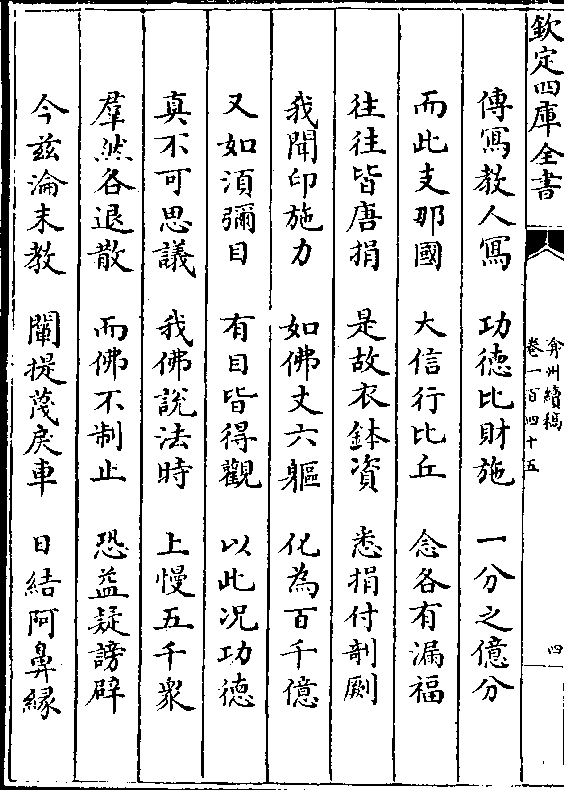 欽定四庫全書
弇州續稿
卷一百四十五
四
傳寫教人寫　功德比財施　一分之億分
而此支那國　大信行比丘　念各有漏福
往往皆唐捐　是故衣鉢資　悉捐付剞劂
我聞印施力　如佛丈六軀　化為百千億
又如湏彌目　有目皆得觀　以此况功德
真不可思議　我佛說法時　上慢五千衆
羣然各退散　而佛不制止　恐益疑謗辟
今兹淪末教　闡提蔑戾車　日結阿鼻緣